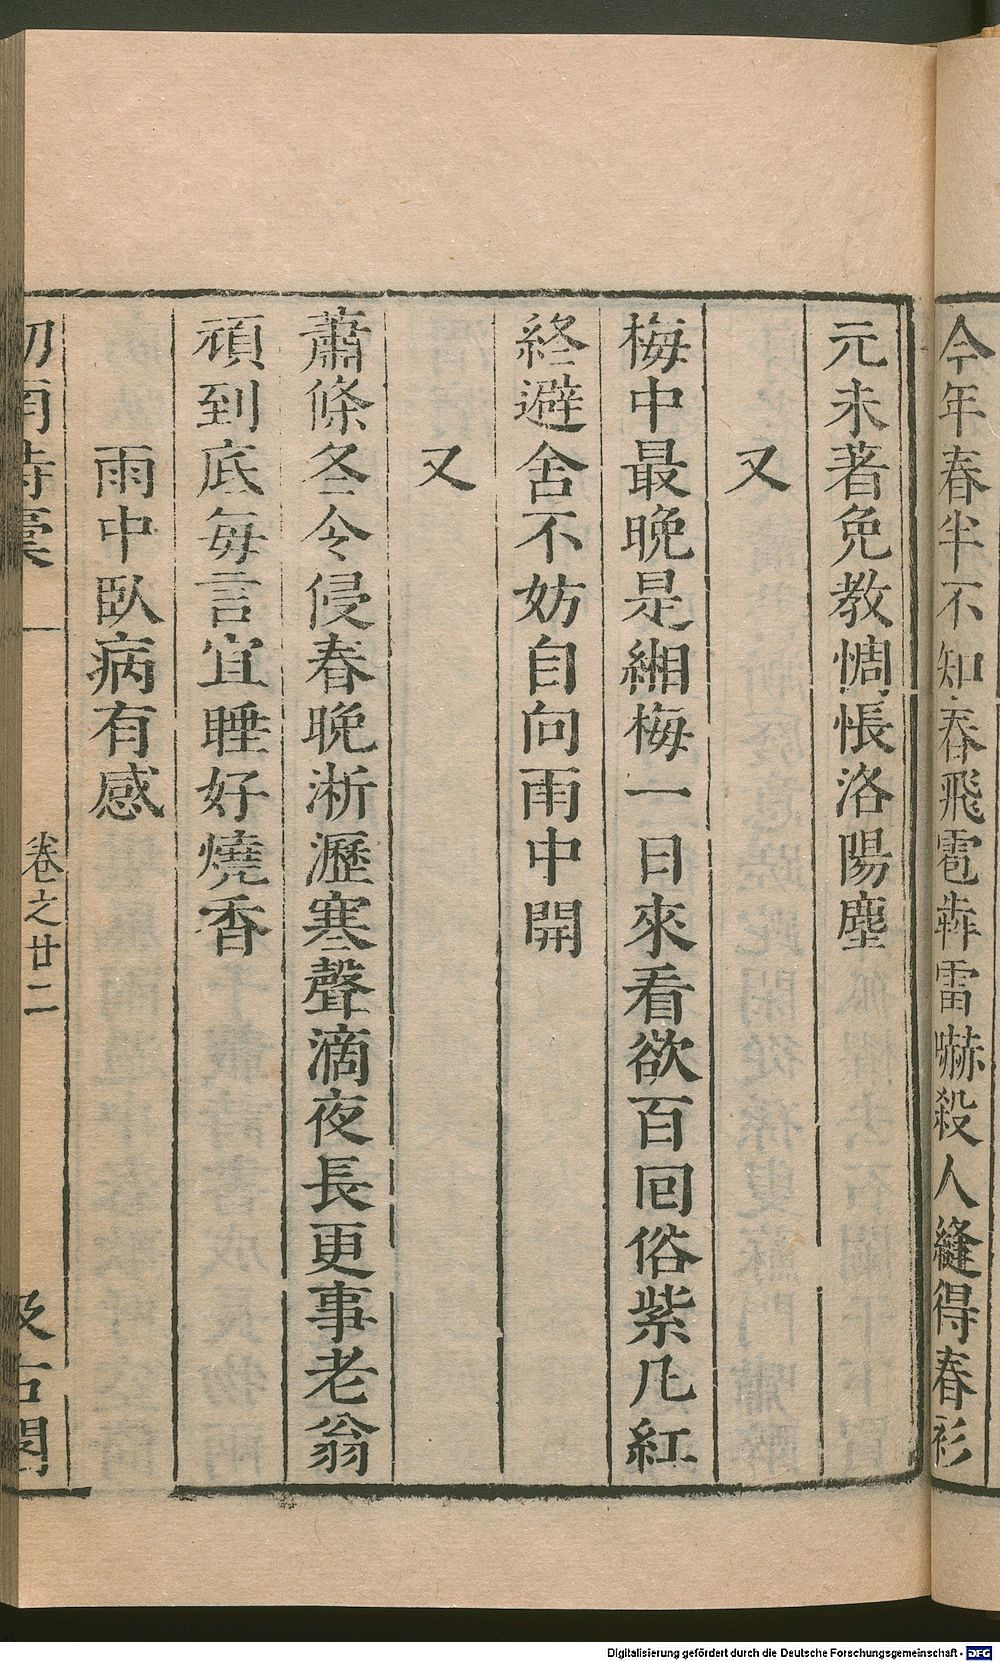 今年春半不知春飛雹犇雷嚇殺人縫得春衫
元未著免教惆悵洛陽塵
又
梅中最晚是緗梅一日來看欲百回俗紫凡紅
終避舍不妨自向雨中開
又
蕭條冬令侵春晚淅瀝寒聲滴夜長更事老翁
頑到底每言宜睡好燒香
雨中臥病有感
卷之廿二
Digitalisierung gefördert durch die Deutsche Forschungsgemeinschaft - DFG